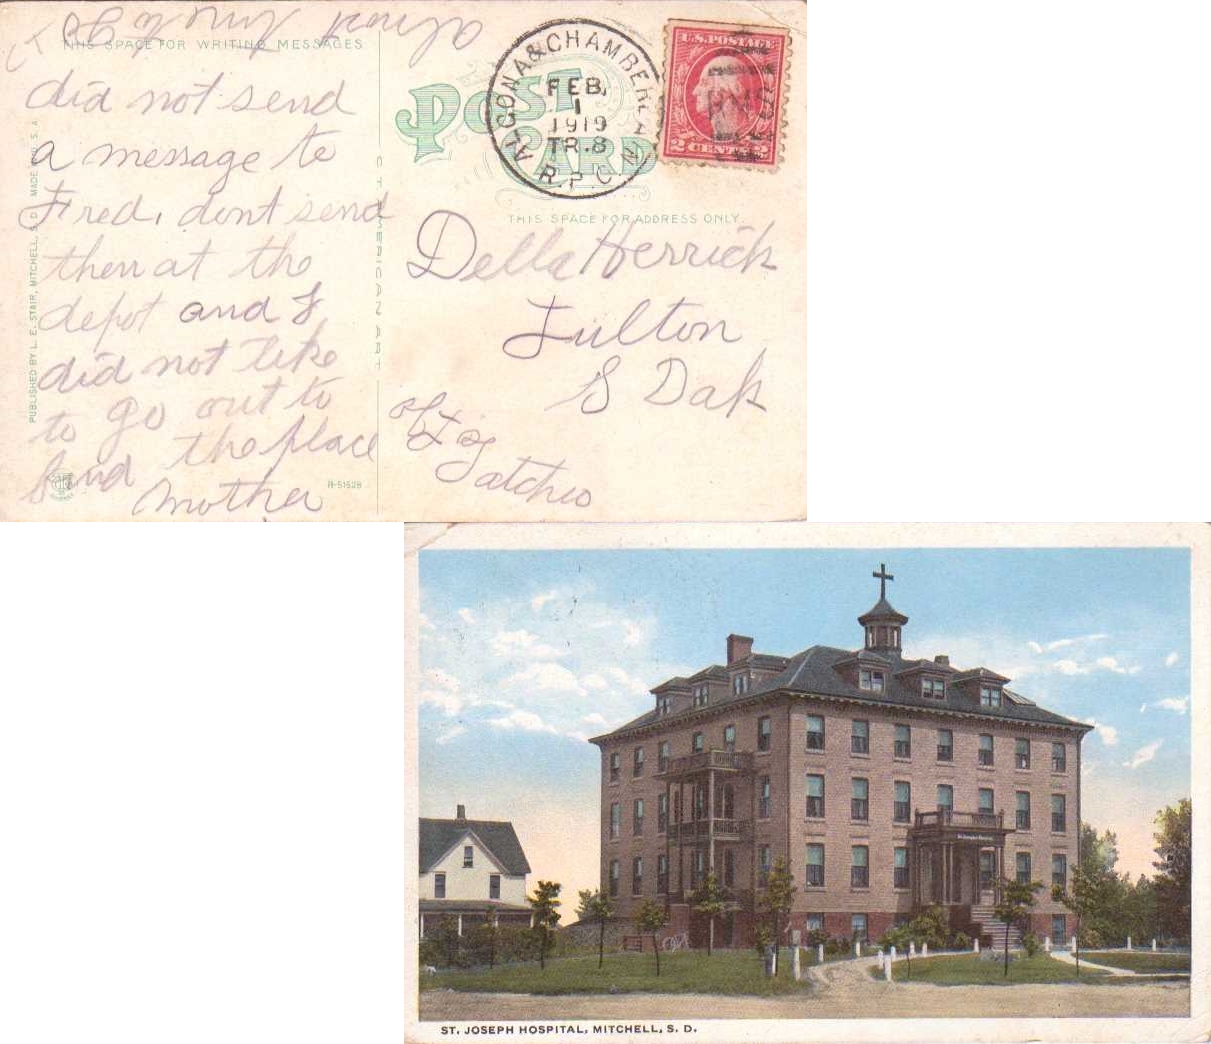 THIS SPACE FOR WRITING MESSAGES
did not send
a message to
Fred, dont send
then at the
depot and I
did not like
to go out to
send the place
Mother
PUBLISHED BY L. E. STAIR, MITCHELL, S. D. MADE IN U. S. A.
C. T. AMERICAN ART
R-51528
POST CARD
ALGONA & CHAMBERLAIN
FEB.
1
1919
TR.8
R.P.O.
U.S. POSTAGE
2 CENTS 2
RMS
THIS SPACE FOR ADDRESS ONLY.
Della Herrick
Fulton
S Dak
ST. JOSEPH HOSPITAL, MITCHELL, S. D.